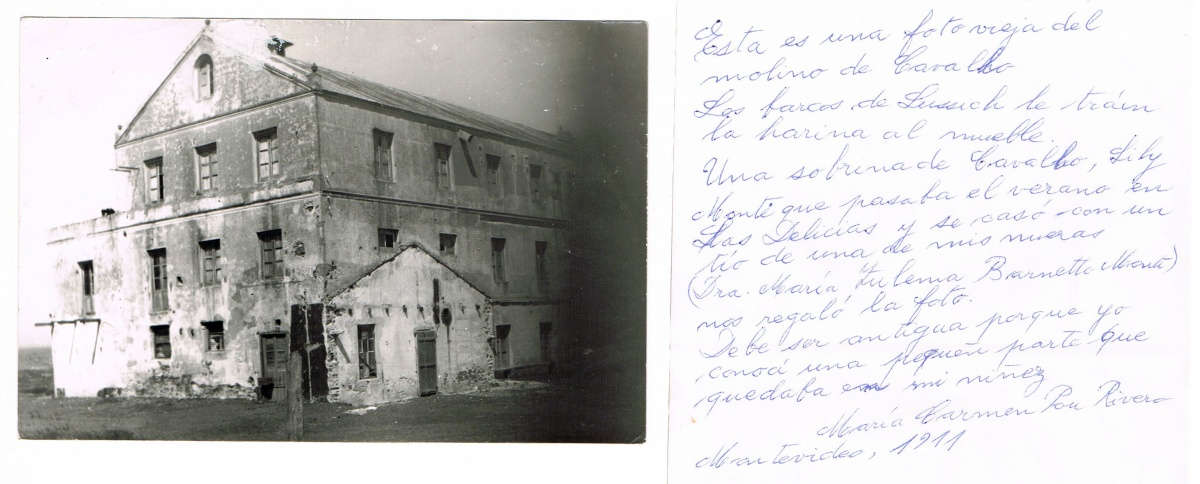 Esta es una foto vieja del
molino de Cavalho
Los barcos de Lussich le tráin
la harina al mueble.
Una sobrina de Cavalho, Lily
Monté que pasaba el verano en
Las Delicias y se casó con un
tío de una de mis nueras
(Dra. María Zulema Barnetto Monté)
nos regaló la foto.
Debe ser antigua porque yo
conocí una pequeñ parte que
quedaba en mi niñez
María Carmen Pou Rivero
Montevideo, 1911